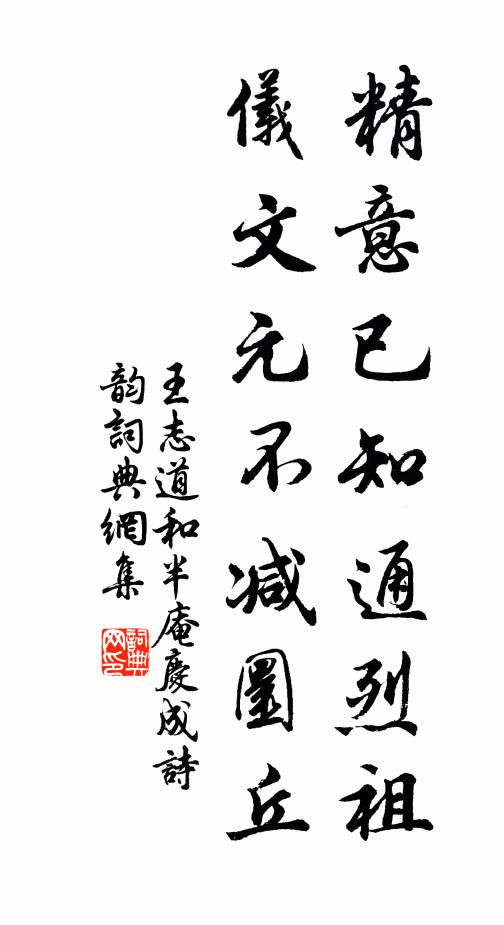 精意已知通烈祖
儀文元不减圜丘
王志道和半庵慶成詩
韵詞典網集
詞典網印